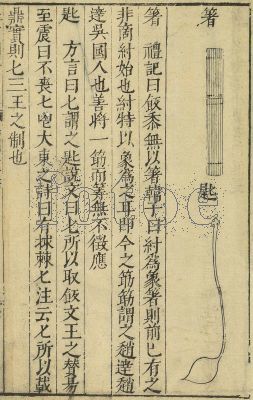 箸
匙
箸 禮記曰飯黍無以箸韓子曰紂為象箸則前已有之
非商紂始也紂特以象為之正即今之筯筯謂之趙達趙
達吳國人也善將一筯而筭無不徵應
匙 方言曰匕謂之匙說文曰匕所以取飯文王之贊易
至震曰不喪匕鬯大東之詩曰有捄棘匕注云匕所以載
鼎實則匕三王之制也